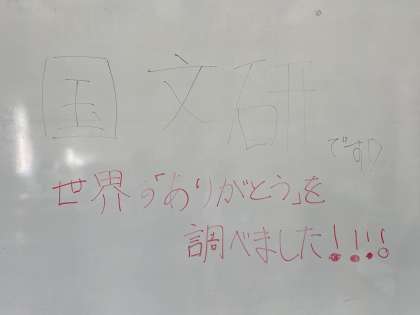 国文研
です!)
世界の「ありがとう」を
調べました!!!!